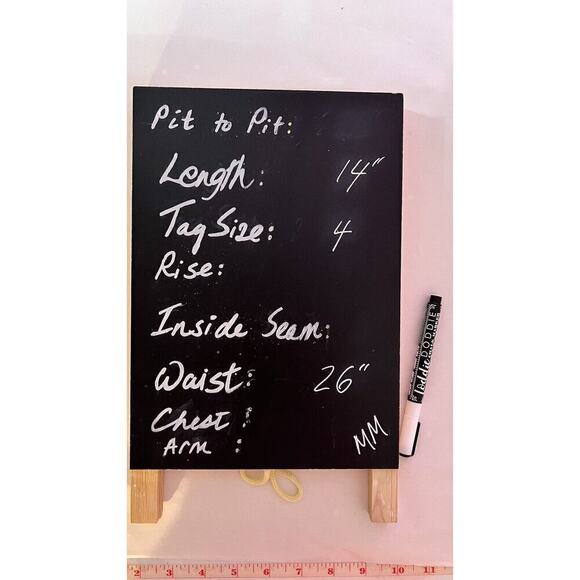 Pit to Pit:
Length: 14"
Tag Size: 4
Rise:
Inside Seam:
Waist: 26"
Chest :
Arm :
MM
DODDIE
2 3 4 5 6 7 8 9 10 11